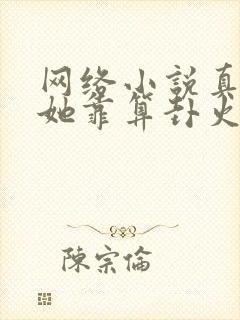 网络小説真
她靠算卦火
陳宗倫